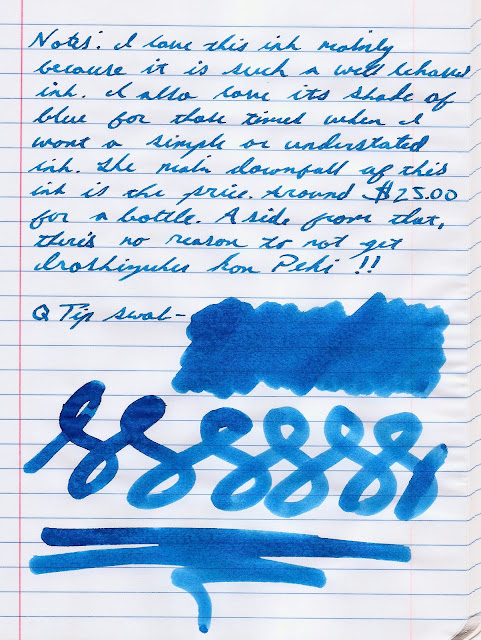 Notes: I love this ink mainly
because it is such a well behaved
ink. I also love its shade of
blue for those times when I
want a simple or understated
ink. The main downfall of this
ink is the price. Around $25.00
for a bottle. Aside from that,
there's no reason to not get
Iroshizuku Kon Peki !!
Q Tip swab-